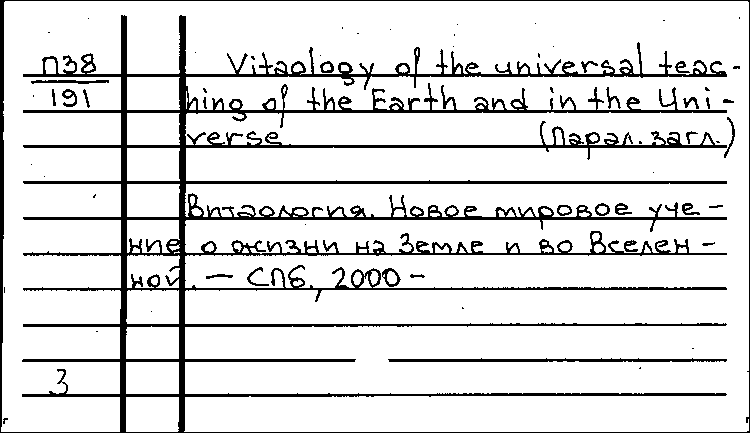 П38
191
Vitaology of the universal teac-
hing of the Earth and in the Uni-
verse. (Парал. загл.)
Витаология. Новое мировое уче-
ние о жизни на Земле и во Вселен-
ной. — СПб., 2000-
3